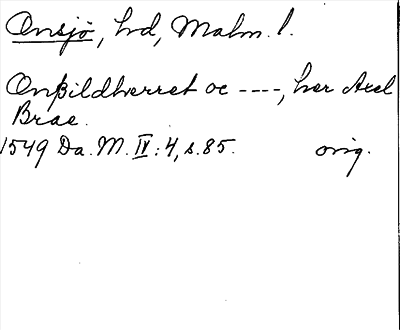 Onsjö, hd, Malm. l.
Onßildherret oc ----, her Axel
Brae.
1549 Da. M. IV: 4, s. 85. orig.